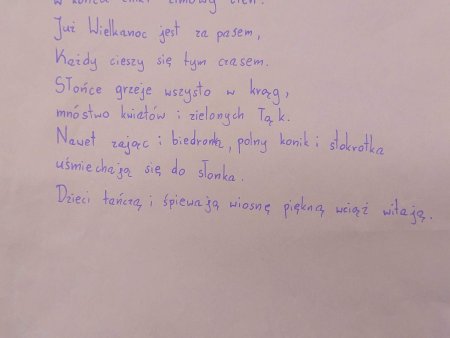 w końcu znikł zimowy cień.
Już Wielkanoc jest za pasem,
Każdy cieszy się tym czasem.
Słońce grzeje wszysto w krąg,
mnóstwo kwiatów i zielonych łąk.
Nawet zając i biedronka, polny konik i stokrotka
uśmiechają się do słonka.
Dzieci tańczą i śpiewają wiosnę piękną wciąż witają.